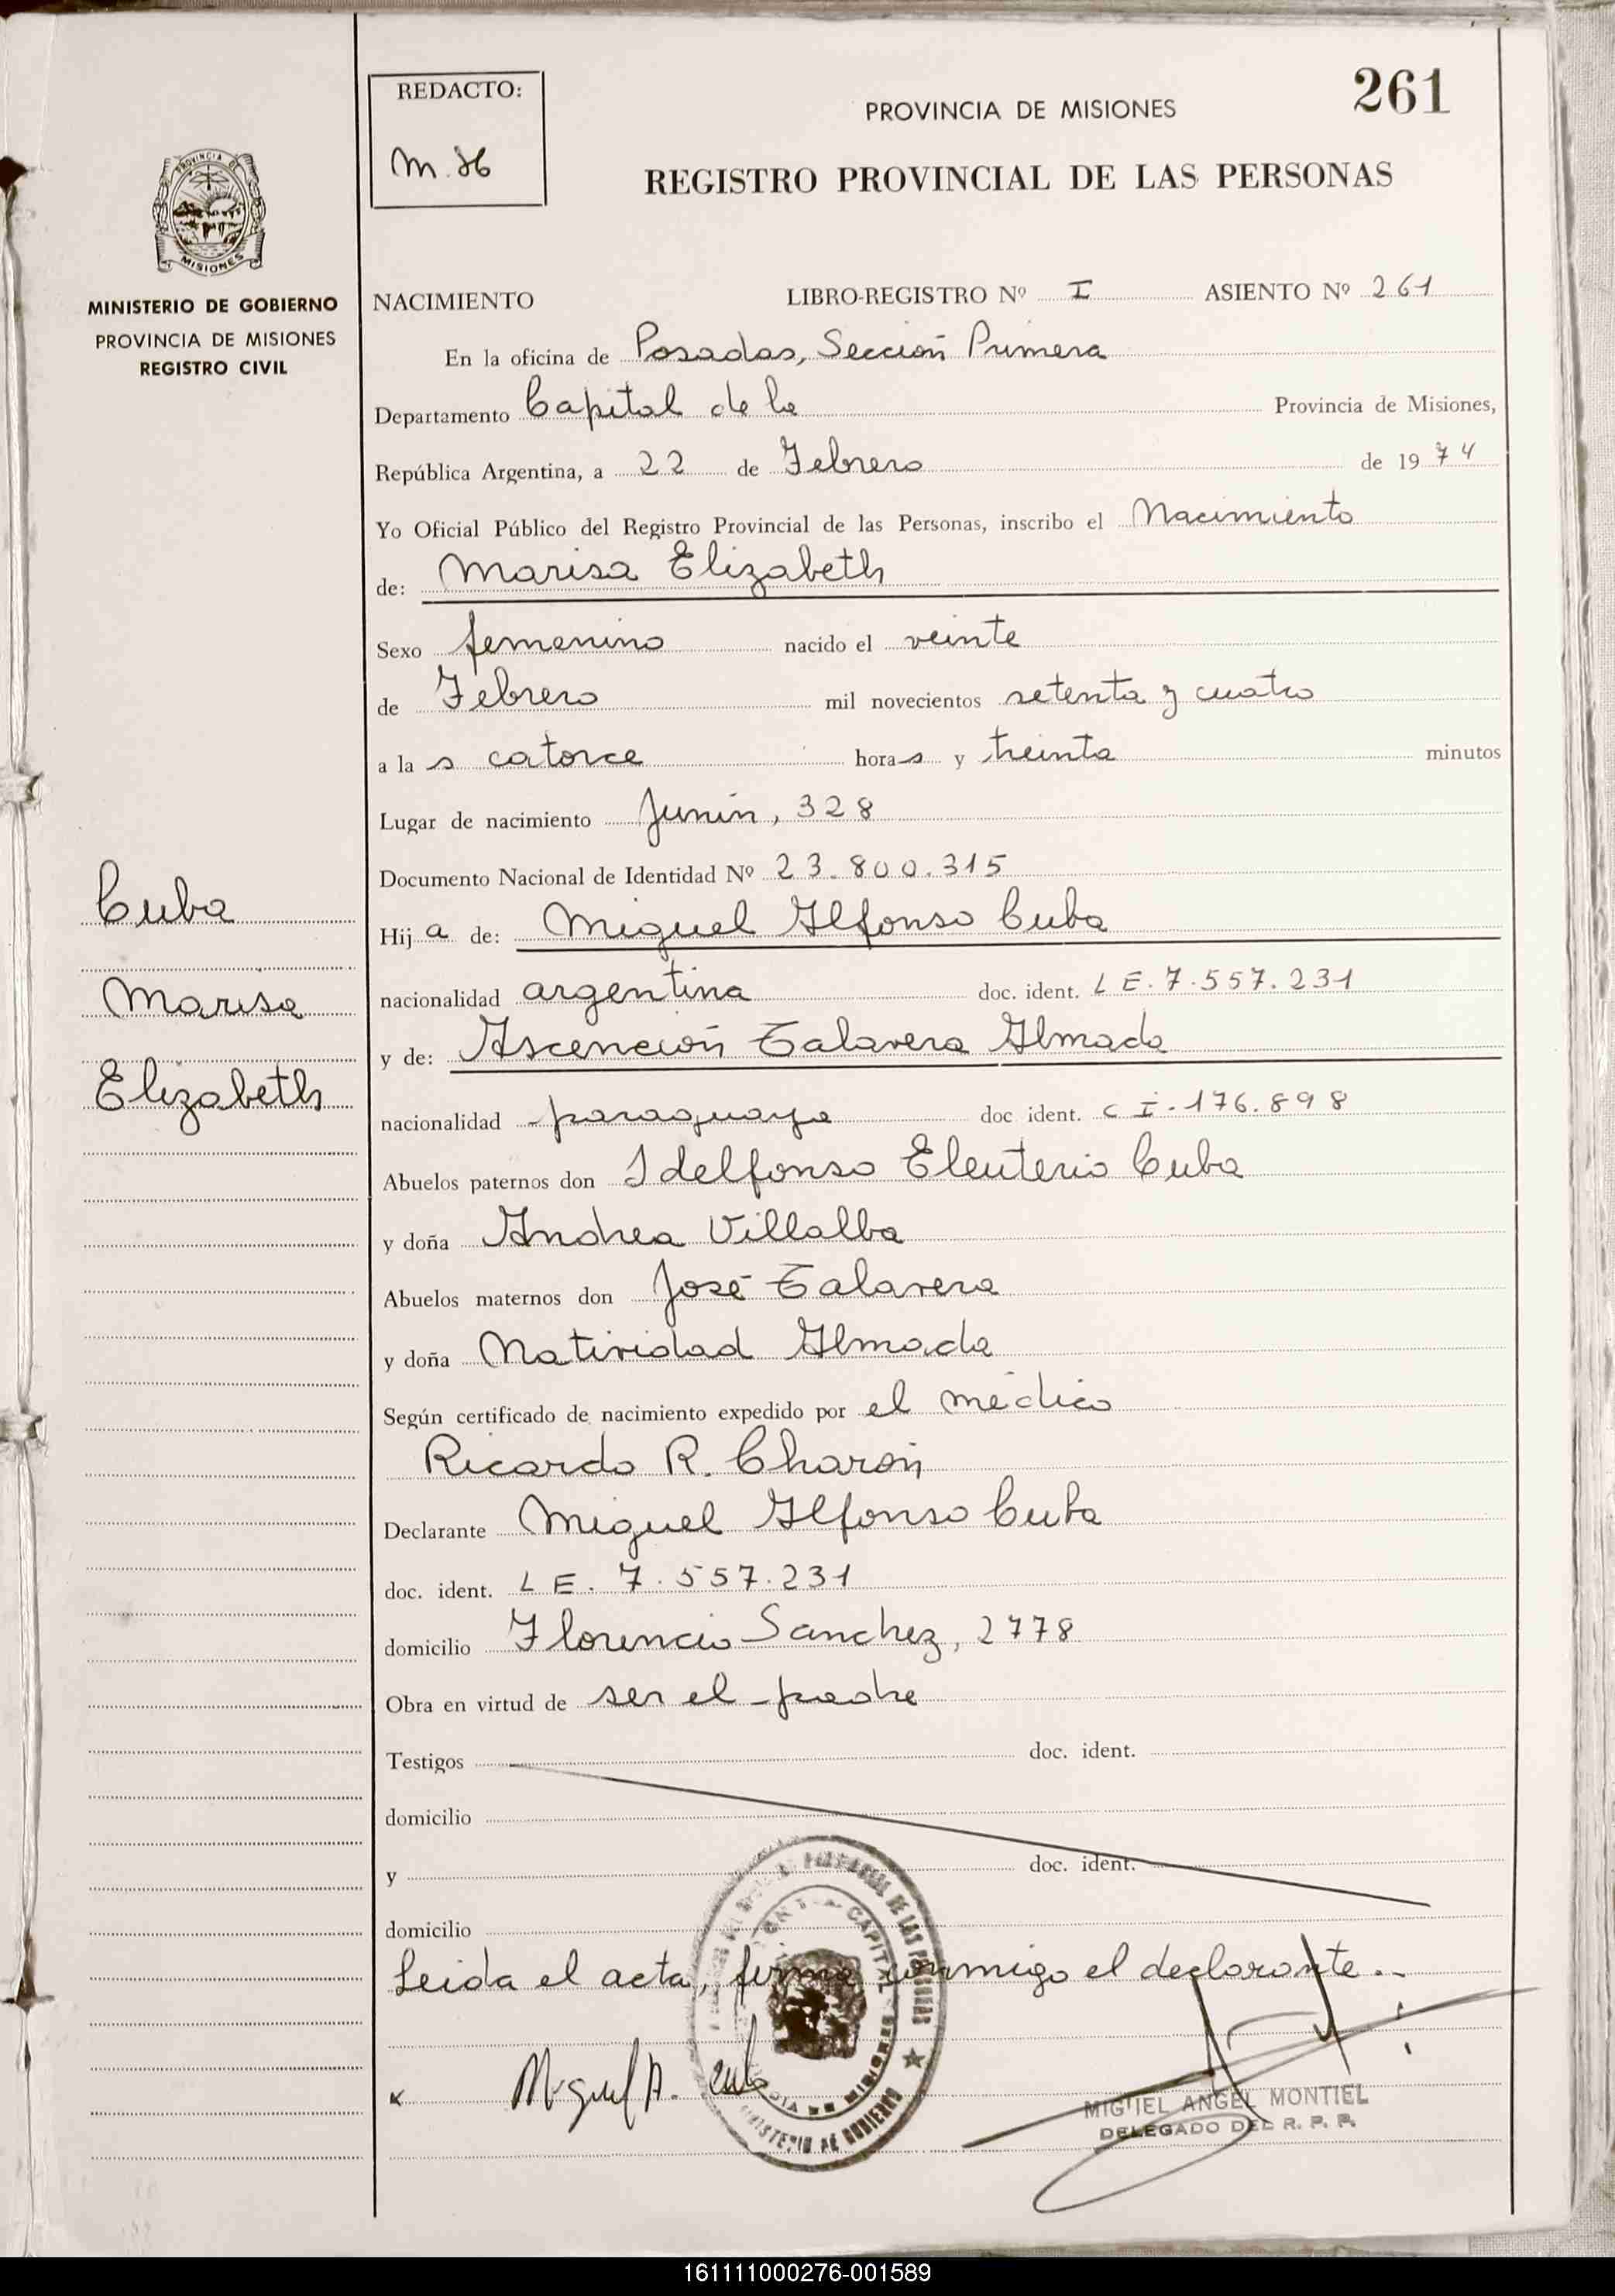 261
REDACTO:
PROVINCIA DE MISIONES
REGISTRO PROVINCIAL DE LAS PERSONAS
PROVINCIA DE
MISIONES
MINISTERIO DE GOBIERNO
PROVINCIA DE MISIONES
REGISTRO CIVIL
NACIMIENTO LIBRO-REGISTRO Nº I ASIENTO Nº 261
En la oficina de Posadas, Sección Primera
Departamento Capital de la Provincia de Misiones,
República Argentina, a 22 de Febrero de 1974
Yo Oficial Público del Registro Provincial de las Personas, inscribo el Nacimiento
de: Marisa Elizabeth
Sexo femenino nacido el veinte
de Febrero mil novecientos setenta y cuatro
a la s catorce horas y treinta minutos
Lugar de nacimiento Junín, 328
Documento Nacional de Identidad Nº 23.800.315
Cuba
Marisa
Elizabeth
Hija de: Miguel Alfonso Cuba
nacionalidad argentina doc. ident. L E. 7.557.231
y de: Ascención Talavera Almada
nacionalidad paraguaya doc ident. C I. 176.898
Abuelos paternos don Idelfonso Eleuterio Cuba
y doña Andrea Villalba
Abuelos maternos don José Talavera
y doña Natividad Almada
Según certificado de nacimiento expedido por el médico
Ricardo R. Charón
Declarante Miguel Alfonso Cuba
doc. ident. L E. 7.557.231
domicilio Florencio Sanchez, 2778
Obra en virtud de ser el padre
Testigos doc. ident.
domicilio
y doc. ident.
domicilio
Leida el acta, firma conmigo el declarante.-
Miguel A. Cuba
MIGUEL ANGEL MONTIEL
DELEGADO DEL R. P. P.
161111000276-001589